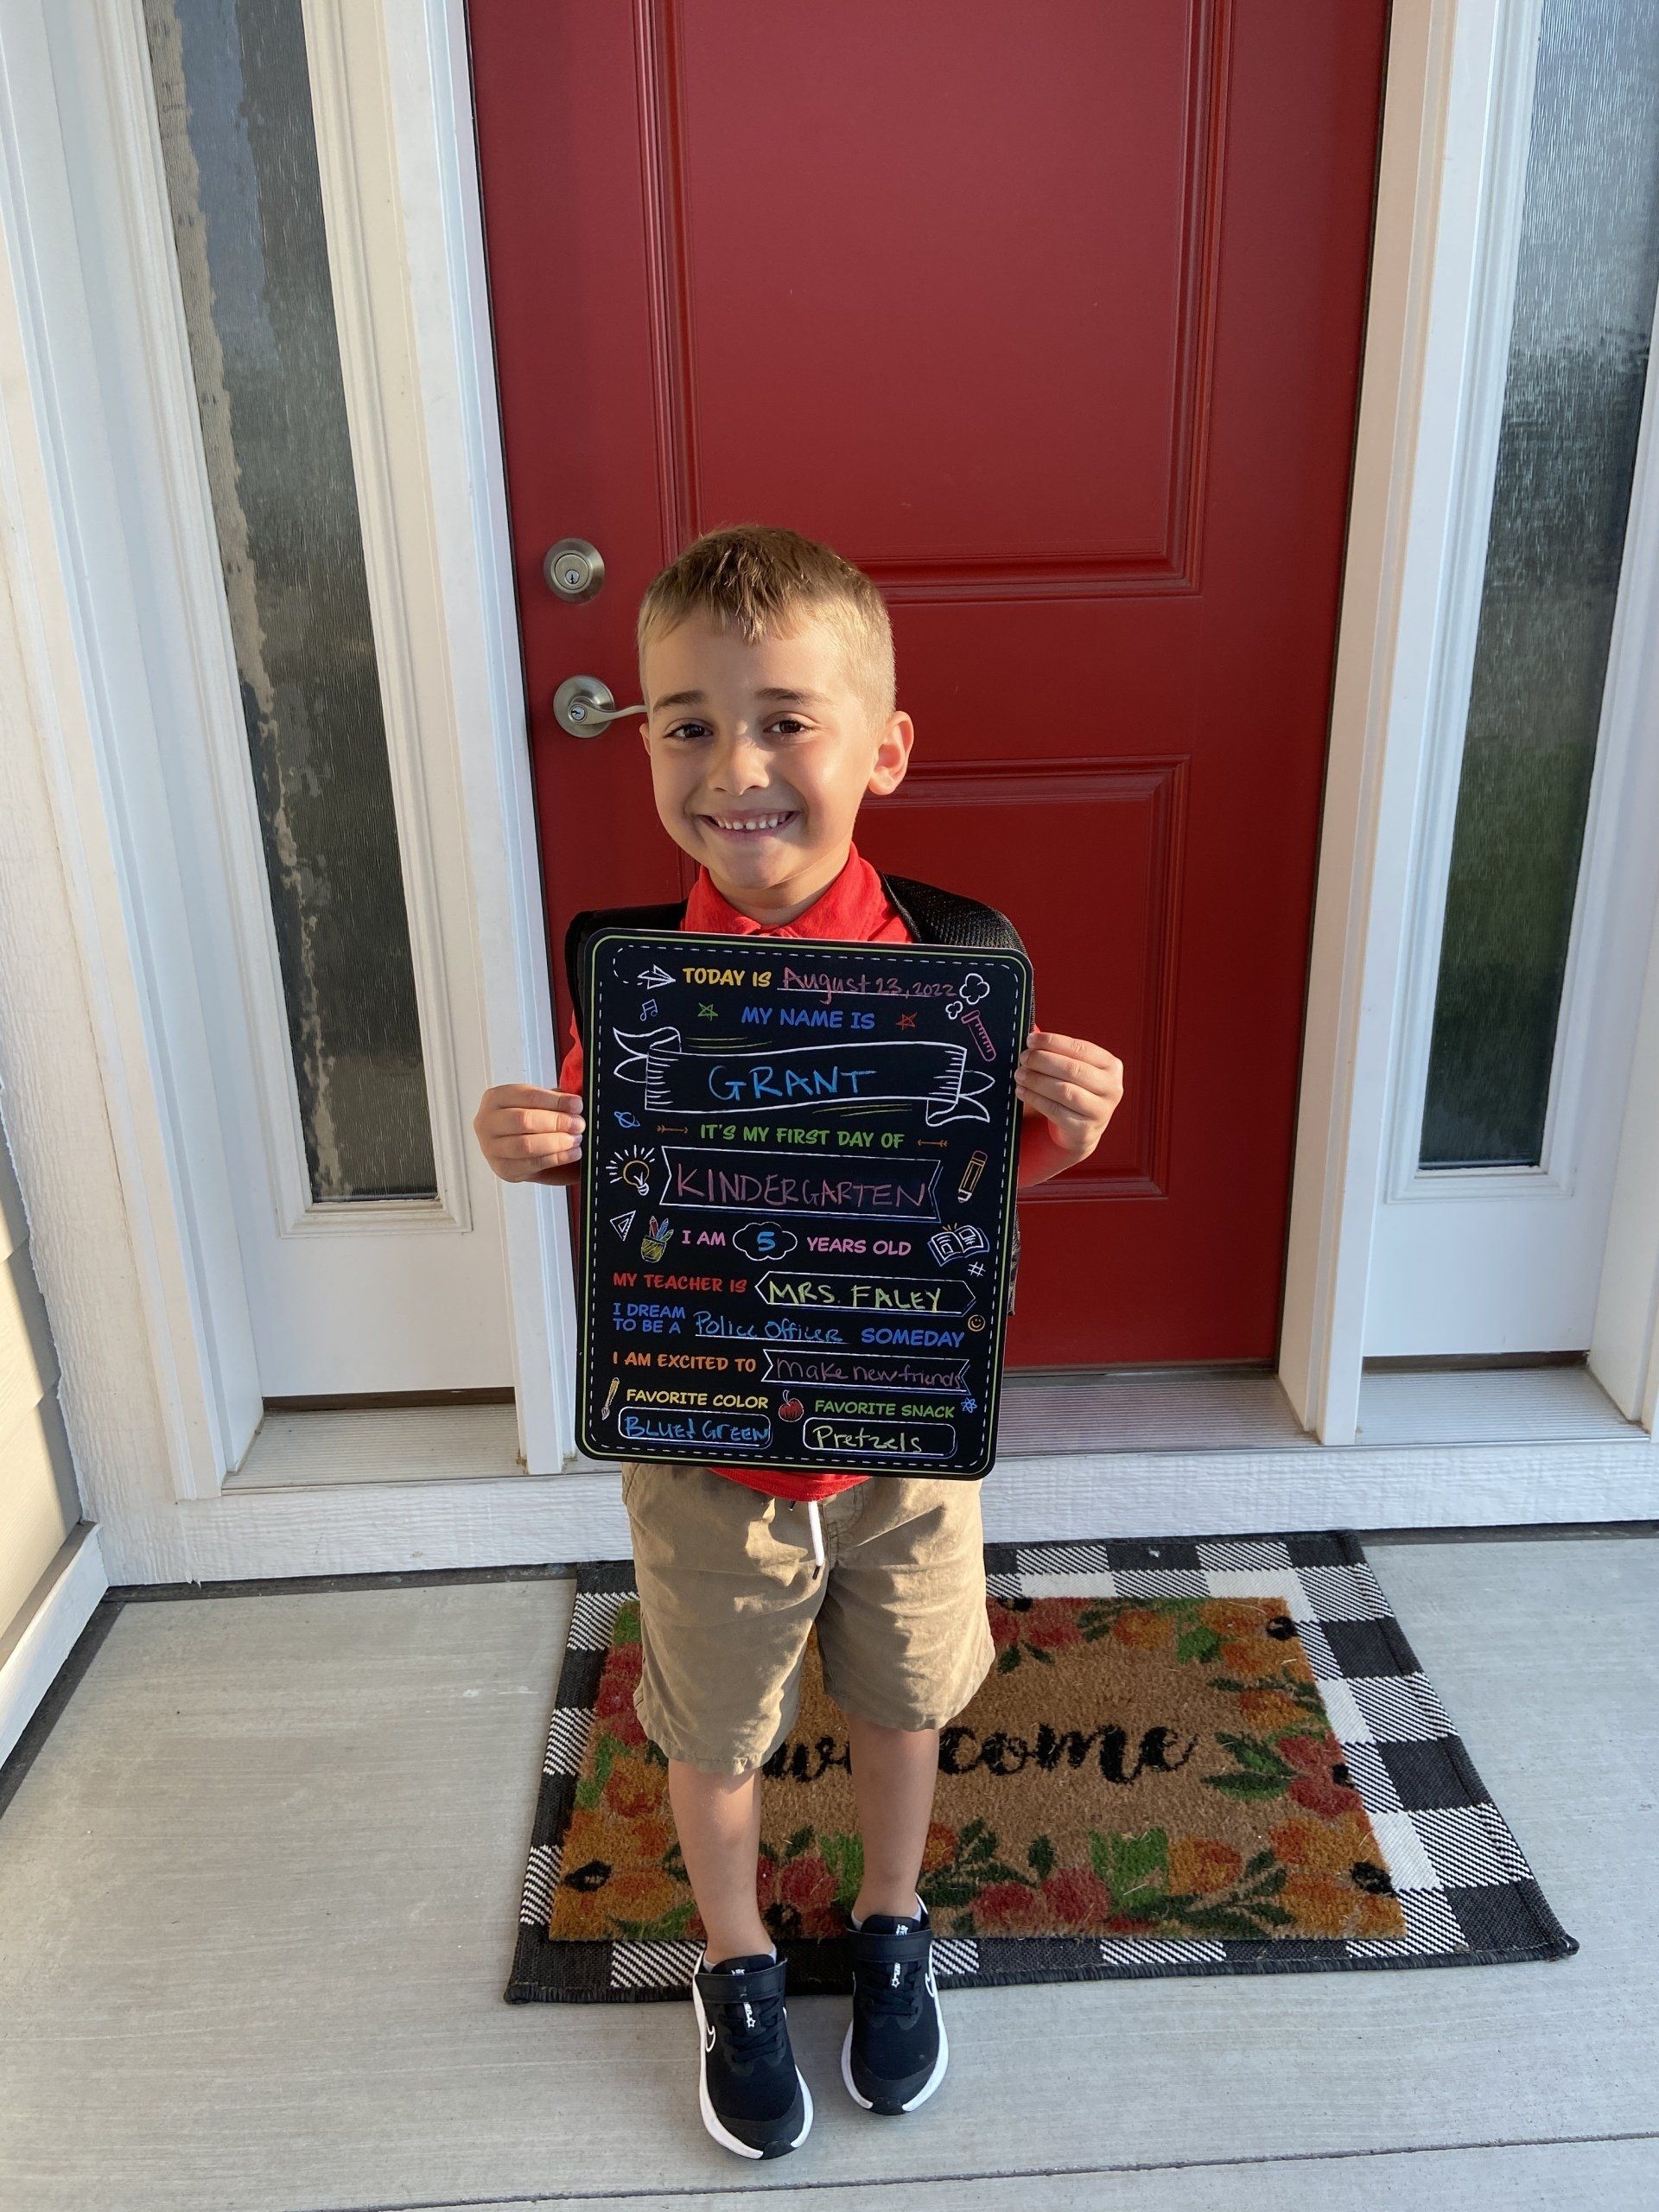 TODAY IS August 23, 2022
MY NAME IS
GRANT
IT'S MY FIRST DAY OF
KINDERGARTEN
I AM 5 YEARS OLD
#
MY TEACHER IS MRS. FALEY
I DREAM TO BE A Police Officer SOMEDAY
I AM EXCITED TO make new friends
FAVORITE COLOR
BLUE & GREEN
FAVORITE SNACK
Pretzels
welcome